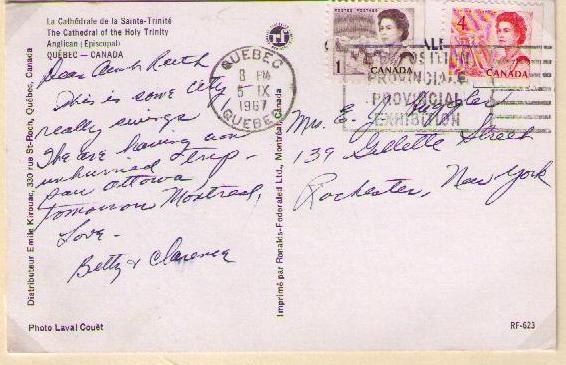 La Cathédrale de la Sainte-Trinité
The Cathedral of the Holy Trinity
Anglican (Episcopal)
QUÉBEC — CANADA
Dear Aunt Ruth
This is some city
really swings
We are having an
unhurried trip -
saw Ottawa
tomorrow Montreal,
Love -
Betty & Clarence
Distributeur Emile Kirouac, 330 rue St-Roch, Québec, Canada
Photo Laval Couët
Imprimé par Ronalds-Federated Ltd., Montréal, Canada
QUEBEC
8 PM
5 IX
1967
QUEBEC
EXPOSITION
PROVINCIALE
PROVINCIAL
EXHIBITION
POSTES POSTAGE
1
CANADA
4
CANADA
Mrs. E. J.
139 Gillette Street
Rochester, New York
RF-623